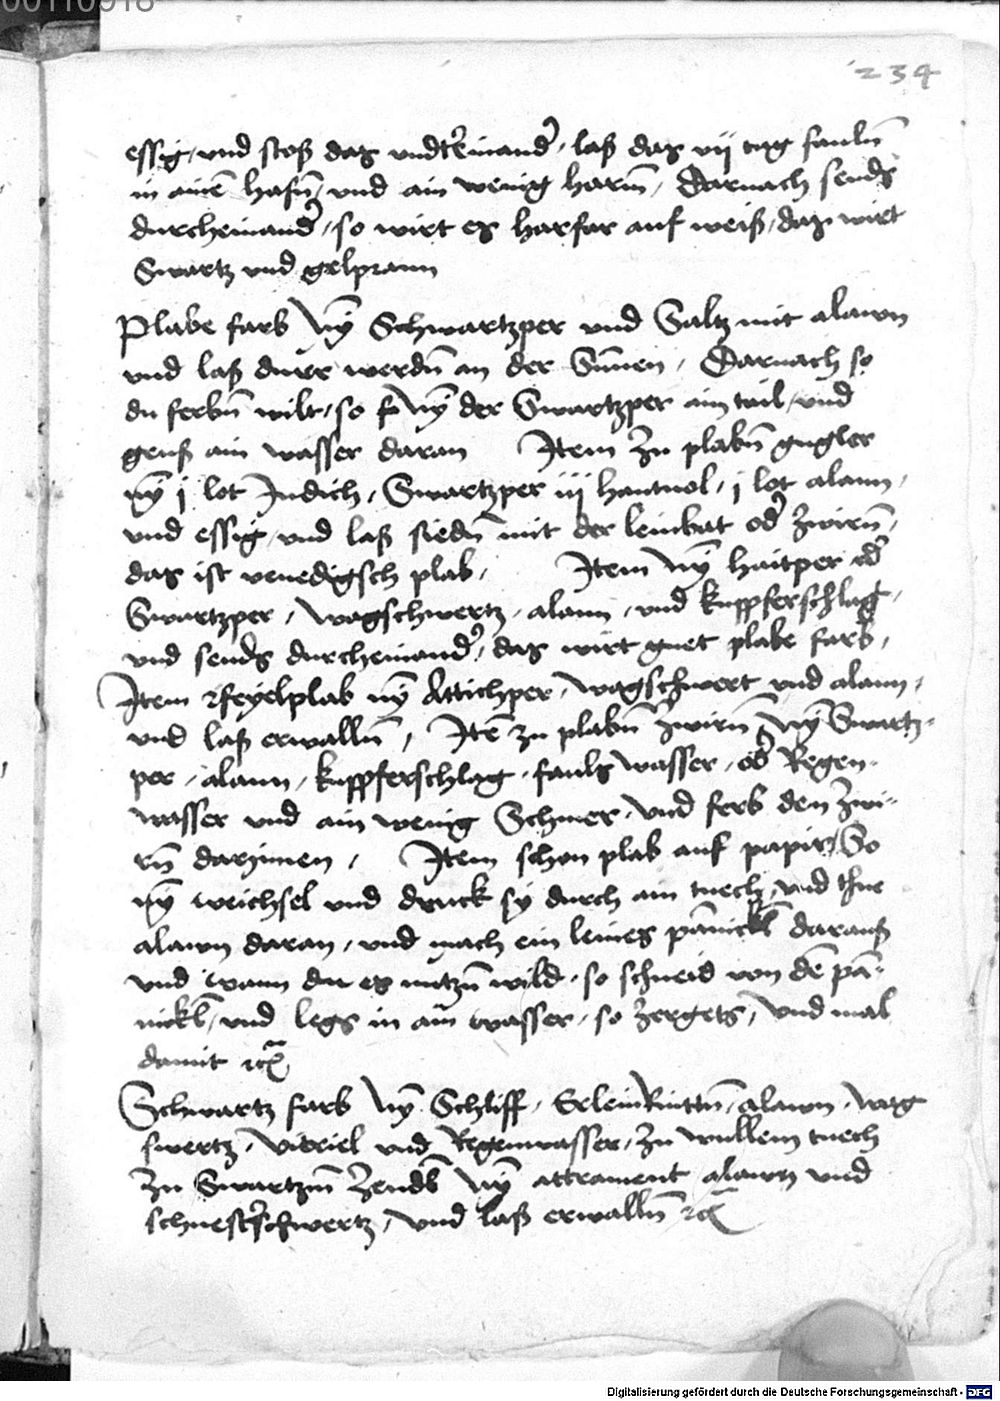 00110918
234
essig, und stoß das undtereinander, laß das vij tag faulñ
in ainē hafñ, und ain wenig harm̄, Darnach seuds
durcheinander, so wirt es harfar auf weiß, das wirt
Swartz und gelprann
Plabe farb Nȳ Schwartzper und Saltz mit alawn
und laß durr werdñ an der Sunnen, Darnach so
du ferbñ wilt, so nȳ der Swartzper ain tail, und
geuß ain wasser daran Item Zu plabñ gugler
nȳ j lot Indich, Swartzper iij hantuol, j lot alaun,
und essig, und laß siedñ mit der leinbat oder zwirñ,
das ist venedigsch plab, Item Nȳ haitper oder
Swartzper, wagschwertz, alaun, und kuppferschlag,
und seuds durcheinander, das wirt guet plabe farb,
Item feyelplab nȳ Attichper, wagschwert und alaun,
und laß erwallñ, Itē zu plabñ zwirñ Nȳ Swartz-
per, alaun, kuppferschlag, fauls wasser, oder Regen-
wasser und ain wenig Schmer, und ferb den Zwi-
rñ darjnnen, Item schon plab auf papir, So
nȳ weichsel und druck sy durch ain tuech, und thue
alawn daran, und mach ein leines pānickl darauß
und wann du es nutzñ wild, so schneid von dē pā-
nickl, und legs in ain wasser, so zergets, Und mal
damit etc
Schwartz farb Nȳ Schliff, Erleinrinttñ, alawn, wag
swertz, vitriel und Regenwasser, Zu wullem tuech
Zu Swartzm̄ Zendl Nȳ attrament alawn und
schuesterschwertz, und laß erwallñ etc
Digitalisierung gefördert durch die Deutsche Forschungsgemeinschaft - DFG